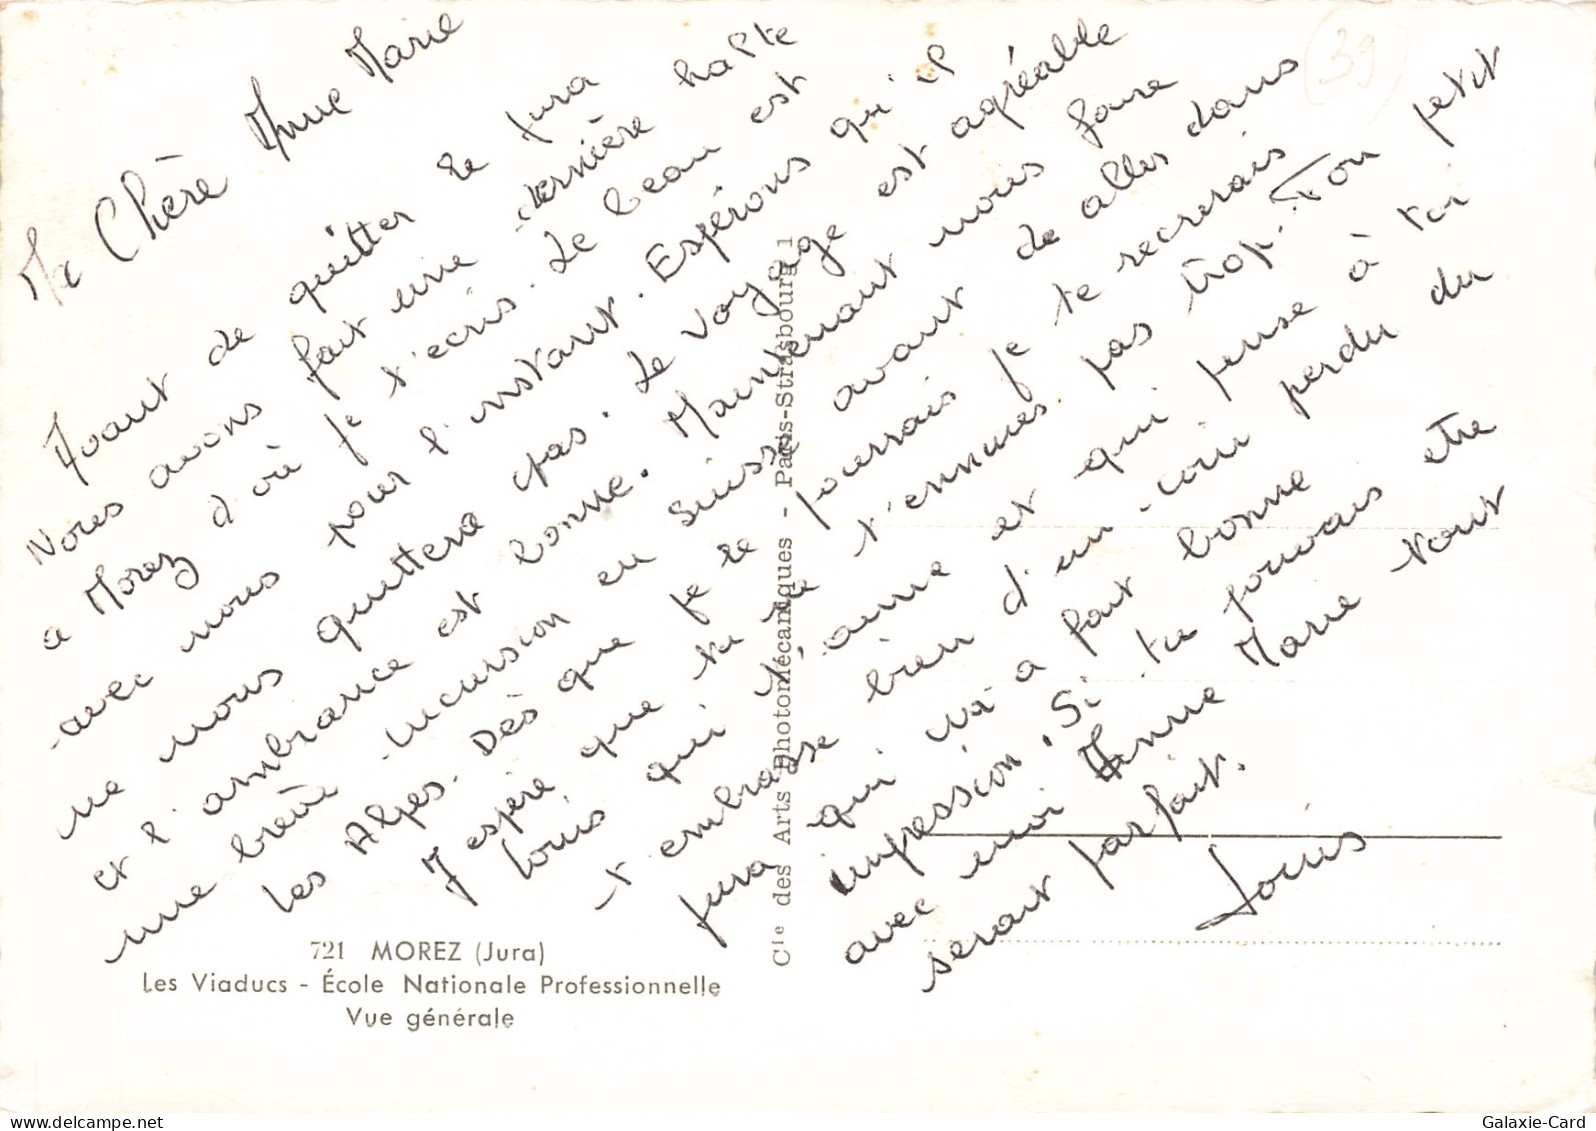 Ma Chère Anne Marie
Avant de quitter le Jura
Nous avons fait une dernière halte
a Morez d'où je t'ecris. Le beau est
avec nous pour l'instant. Espérons qu'il
ne nous quittera pas. Le voyage est agréable
et l'ambiance est bonne. Maintenant nous faire
une brève incursion en Suisse avant de aller dans
les Alpes. Dès que je le pourrais je te recrerais
J'espère que tu ne t'ennuies pas trop. Ton petit
Louis qui t'aime et qui pense à toi
t'embrasse bien d'un coin perdu du
Jura qui m'a fait bonne
impression. Si tu pouvais etre
avec moi Anne Marie tout
serait parfait.
Louis
39
721 MOREZ (Jura)
Les Viaducs - École Nationale Professionnelle
Vue générale
Cie des Arts Photomécaniques - Paris-Strasbourg 1
Galaxie-Card